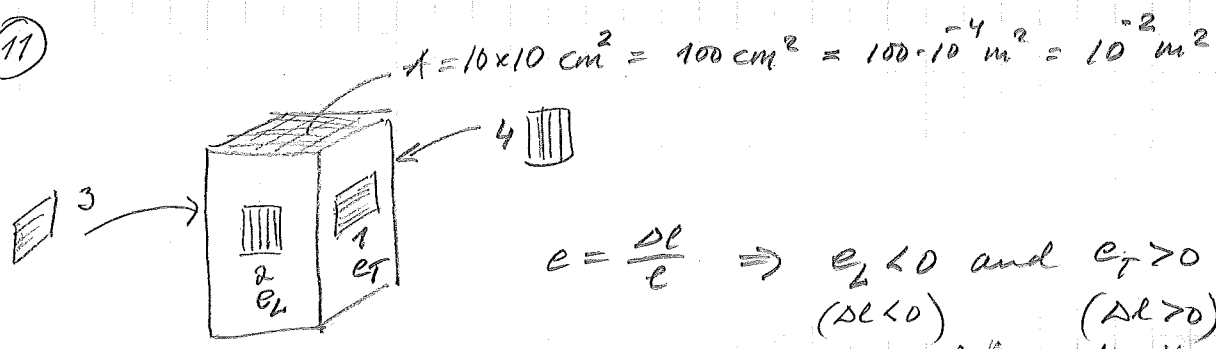 11
A = 10x10 cm² = 100 cm² = 100·10⁻⁴ m² = 10⁻² m²
4
3
1
e_T
2
e_L
e = Δl/l ⇒ e_L < 0 and e_T > 0
(Δl<0) (Δl>0)